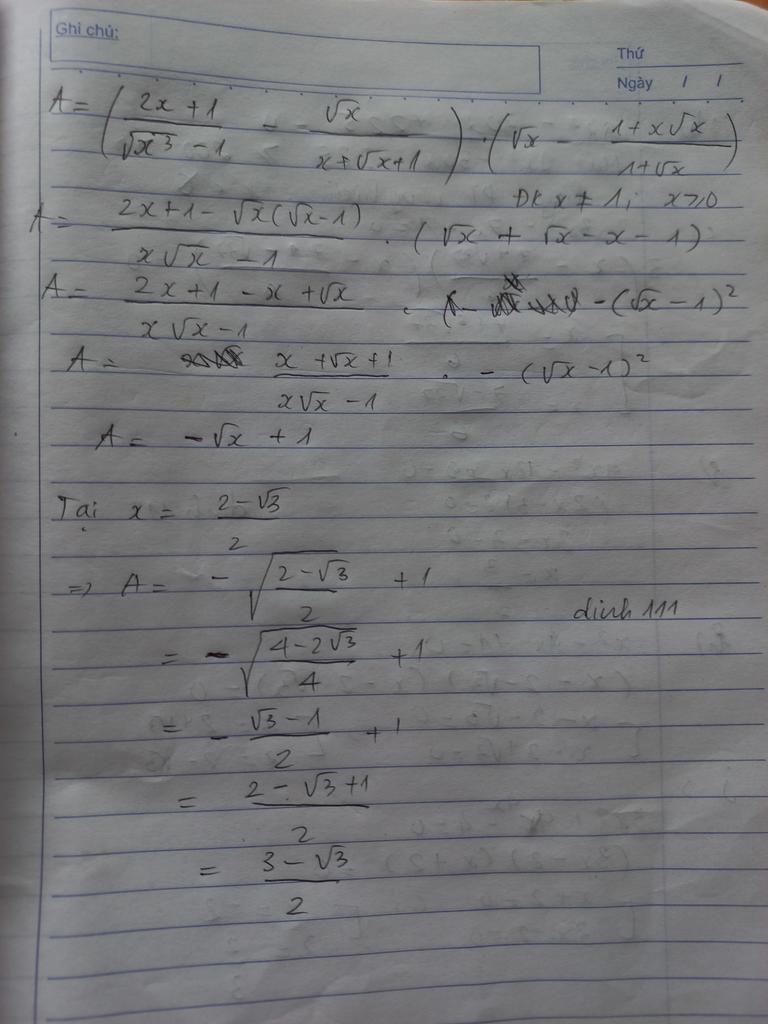 Ghi chú:
Thứ
Ngày / /
A = ( (2x + 1)/(√x³ - 1) - √x/(x + √x + 1) ) · ( √x - (1 + x√x)/(1 + √x) )
ĐK x ≠ 1; x ≥ 0
A = (2x + 1 - √x(√x - 1))/(x√x - 1) · (√x + √x - x - 1)
A = (2x + 1 - x + √x)/(x√x - 1) · -(√x - 1)²
A = (x + √x + 1)/(x√x - 1) · - (√x - 1)²
A = -√x + 1
Tại x = (2 - √3)/2
=> A = - √((2 - √3)/2) + 1
dinh 111
= - √((4 - 2√3)/4) + 1
= - (√3 - 1)/2 + 1
= (2 - √3 + 1)/2
= (3 - √3)/2